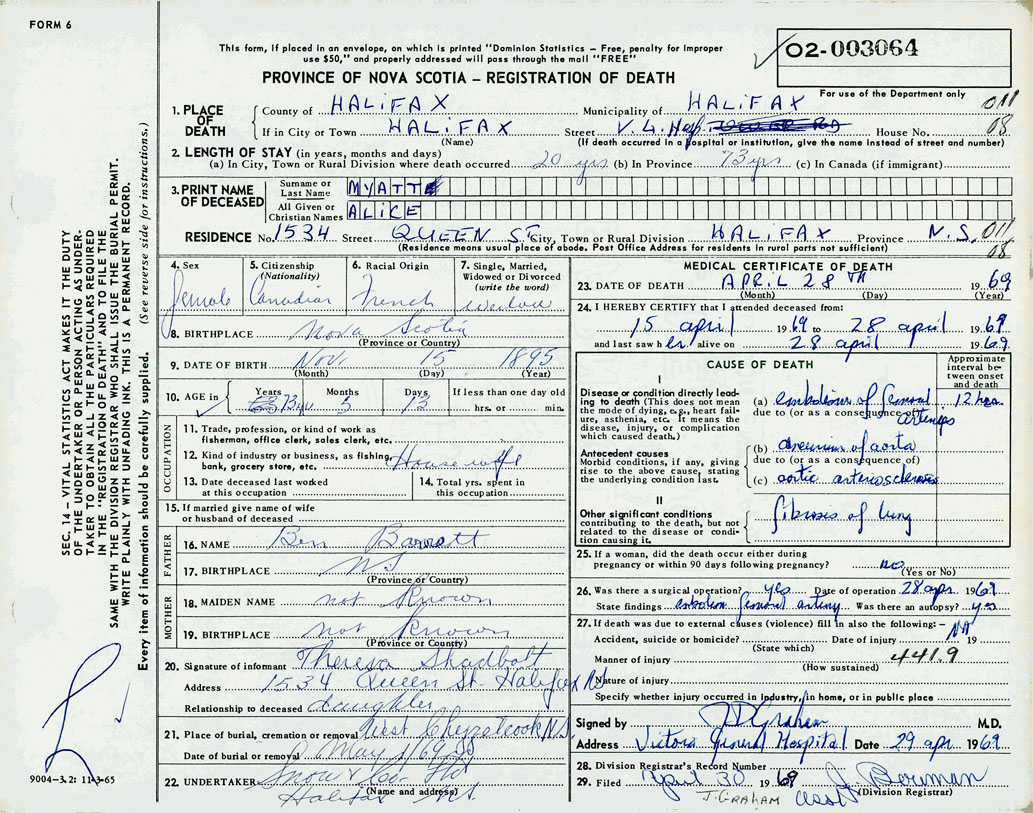 FORM 6
This form, if placed in an envelope, on which is printed "Dominion Statistics – Free, penalty for improper
use $50," and properly addressed will pass through the mail "FREE"
PROVINCE OF NOVA SCOTIA – REGISTRATION OF DEATH
02-003064
For use of the Department only
011
08
1. PLACE OF DEATH
County of HALIFAX Municipality of HALIFAX
If in City or Town HALIFAX Street V. G. Hosp. House No.
(Name) (If death occurred in a hospital or institution, give the name instead of street and number)
2. LENGTH OF STAY (in years, months and days)
(a) In City, Town or Rural Division where death occurred 20 yrs (b) In Province 73 yrs (c) In Canada (if immigrant)
3. PRINT NAME OF DECEASED
Surname or Last Name MYATT
All Given or Christian Names ALICE
RESIDENCE No. 1534 Street QUEEN ST. City, Town or Rural Division HALIFAX Province N.S. 011
(Residence means usual place of abode. Post Office Address for residents in rural parts not sufficient) 08
4. Sex female
5. Citizenship (Nationality) Canadian
6. Racial Origin French
7. Single, Married, Widowed or Divorced (write the word) Widow
8. BIRTHPLACE Nova Scotia
(Province or Country)
9. DATE OF BIRTH Nov. 15 1895
(Month) (Day) (Year)
10. AGE in Years Months 5 Days 13 If less than one day old hrs. or min.
OCCUPATION
11. Trade, profession, or kind of work as
fisherman, office clerk, sales clerk, etc.
12. Kind of industry or business, as fishing,
bank, grocery store, etc. Housewife
13. Date deceased last worked
at this occupation
14. Total yrs. spent in
this occupation
15. If married give name of wife
or husband of deceased
FATHER
16. NAME Ben Barrett
17. BIRTHPLACE NS
(Province or Country)
MOTHER
18. MAIDEN NAME not Known
19. BIRTHPLACE not Known
(Province or Country)
20. Signature of informant Theresa Shadbolt
Address 1534 Queen St. Halifax NS
Relationship to deceased daughter
21. Place of burial, cremation or removal West Chezzetcook N.S.
Date of burial or removal May 1/69
22. UNDERTAKER Snow & Co. Ltd
(Name and address)
Halifax N.S.
MEDICAL CERTIFICATE OF DEATH
23. DATE OF DEATH APRIL 28TH 1969
(Month) (Day) (Year)
24. I HEREBY CERTIFY that I attended deceased from:
15 april 1969 to 28 april 1969
and last saw her alive on 28 april 1969.
CAUSE OF DEATH
Approximate interval between onset and death
I
Disease or condition directly leading to death (This does not mean the mode of dying, e.g., heart failure, asthenia, etc. It means the disease, injury, or complication which caused death.)
(a) embolism of femoral arteries 12 hrs.
due to (or as a consequence of)
Antecedent causes
Morbid conditions, if any, giving rise to the above cause, stating the underlying condition last.
(b) aneurism of aorta
due to (or as a consequence of)
(c) aortic arteriosclerosis
II
Other significant conditions
contributing to the death, but not related to the disease or condition causing it.
fibrosis of lung
25. If a woman, did the death occur either during
pregnancy or within 90 days following pregnancy? no
(Yes or No)
26. Was there a surgical operation? yes Date of operation 28 apr 1969
State findings embolism femoral artery Was there an autopsy? yes
27. If death was due to external causes (violence) fill in also the following: – NA
Accident, suicide or homicide? Date of injury 19
(State which)
Manner of injury 441.9
(How sustained)
Nature of injury
Specify whether injury occurred in industry, in home, or in public place
Signed by J D Graham M.D.
Address Victoria General Hospital Date 29 apr 1969
28. Division Registrar's Record Number
29. Filed April 30 1969 J. Bowman
(Division Registrar)
J. GRAHAM asst
SEC. 14 – VITAL STATISTICS ACT MAKES IT THE DUTY
OF THE UNDERTAKER OR PERSON ACTING AS UNDERTAKER TO OBTAIN ALL THE PARTICULARS REQUIRED
IN THE "REGISTRATION OF DEATH" AND TO FILE THE
SAME WITH THE DIVISION REGISTRAR WHO SHALL ISSUE THE BURIAL PERMIT.
WRITE PLAINLY WITH UNFADING INK. THIS IS A PERMANENT RECORD.
Every item of information should be carefully supplied. (See reverse side for instructions.)
9004-3.2: 11-3-65